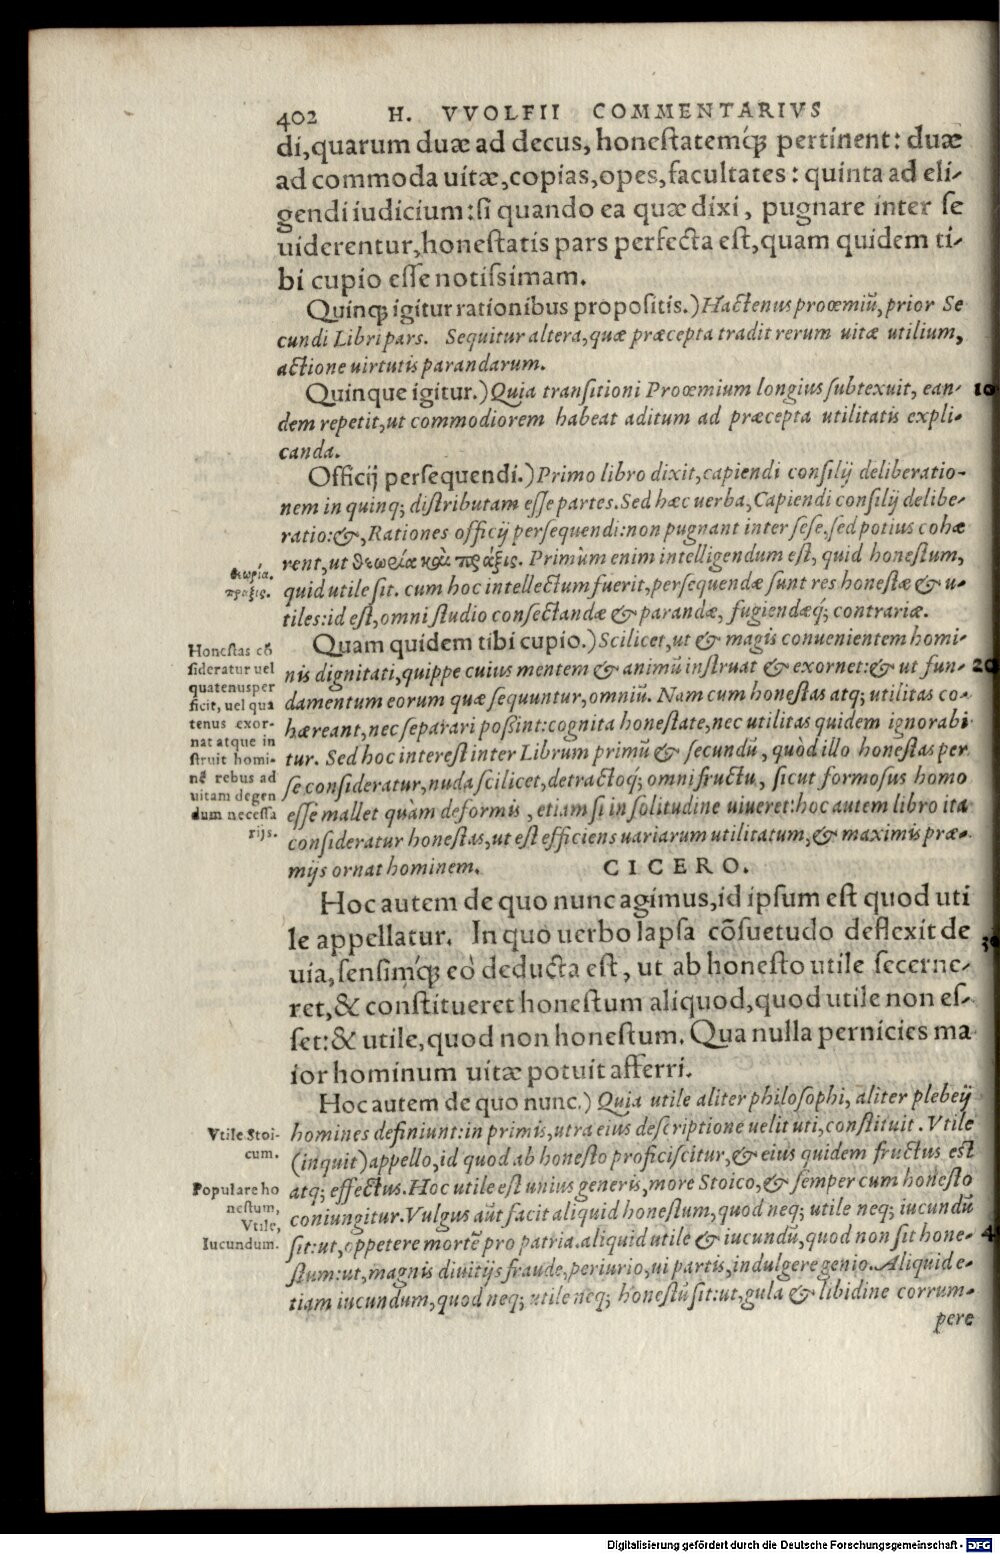 402 H. VVOLFII COMMENTARIVS
di, quarum duæ ad decus, honeſtatemq́; pertinent: duæ
ad commoda uitæ, copias, opes, facultates: quinta ad eli-
gendi iudicium: ſi quando ea quæ dixi, pugnare inter ſe
uiderentur, honeſtatis pars perfecta eſt, quam quidem ti-
bi cupio eſſe notiſsimam.
Quinq; igitur rationibus propoſitis.) Hactenus proœmiũ, prior Se
cundi Libri pars. Sequitur altera, quæ præcepta tradit rerum uitæ utilium,
actione uirtutis parandarum.
Quinque igitur.) Quia tranſitioni Proœmium longius ſubtexuit, ean- 10
dem repetit, ut commodiorem habeat aditum ad præcepta utilitatis expli-
canda.
Officij perſequendi.) Primo libro dixit, capiendi conſilij deliberatio-
nem in quinq; diſtributam eſſe partes. Sed hæc uerba, Capiendi conſilij delibe-
ratio: &, Rationes officij perſequendi: non pugnant inter ſeſe. ſed potius cohæ
rent, ut θεωρία καὶ πρᾶξις. Primùm enim intelligendum eſt, quid honeſtum,
θεωρία.
πρᾶξις.
quid utile ſit. cum hoc intellectum fuerit, perſequendæ ſunt res honeſtæ & u-
tiles: id eſt, omni ſtudio conſectandæ & parandæ, fugiendæq́; contrariæ.
Quam quidem tibi cupio.) Scilicet, ut & magis conuenientem homi-
nis dignitati, quippe cuius mentem & animũ inſtruat & exornet: & ut fun- 20
damentum eorum quæ ſequuntur, omniũ. Nam cum honeſtas atq; utilitas co-
hæreant, nec ſeparari poſsint: cognita honeſtate, nec utilitas quidem ignorabi
tur. Sed hoc intereſt inter Librum primũ & ſecundũ, quòd illo honeſtas per
ſe conſideratur, nuda ſcilicet, detractoq́; omni fructu, ſicut formoſus homo
eſſe mallet quàm deformis, etiam ſi in ſolitudine uiueret: hoc autem libro ita
conſideratur honeſtas, ut eſt efficiens uariarum utilitatum, & maximis præ-
mijs ornat hominem.
Honeſtas cõ
ſideratur uel
quatenus per
ficit, uel qua
tenus exor-
nat atque in
ſtruit homi-
nẽ rebus ad
uitam degen
dum neceſſa
rijs.
CICERO.
Hoc autem de quo nunc agimus, id ipſum eſt quod uti
le appellatur. In quo uerbo lapſa cõſuetudo deflexit de
uia, ſenſimq́; eò deducta eſt, ut ab honeſto utile ſecerne-
ret, & conſtitueret honeſtum aliquod, quod utile non eſ-
ſet: & utile, quod non honeſtum. Qua nulla pernicies ma
ior hominum uitæ potuit afferri.
Hoc autem de quo nunc.) Quia utile aliter philoſophi, aliter plebeij
homines definiunt: in primis, utra eius deſcriptione uelit uti, conſtituit. Vtile
(inquit) appello, id quod ab honeſto proficiſcitur, & eius quidem fructus eſt
Vtile Stoi-
cum.
atq; effectus. Hoc utile eſt unius generis, more Stoico, & ſemper cum honeſto
coniungitur. Vulgus aũt facit aliquid honeſtum, quod neq; utile neq; iucundũ
ſit: ut, oppetere mortẽ pro patria. aliquid utile & iucundũ, quod non ſit hone-
Populare ho
neſtum,
Vtile,
Iucundum.
ſtum: ut, magnis diuitijs fraude, periurio, ui partis, indulgere genio. Aliquid e-
tiam iucundum, quod neq; utile neq; honeſtũ ſit: ut, gula & libidine corrum-
pere
Digitalisierung gefördert durch die Deutsche Forschungsgemeinschaft - DFG